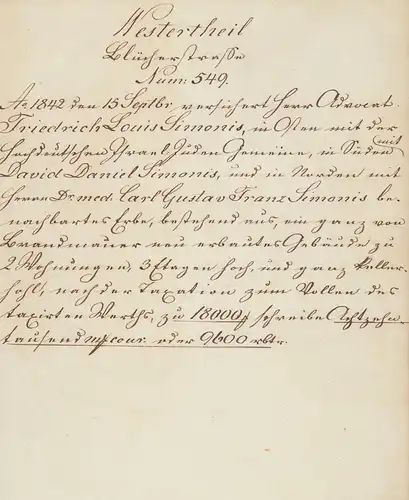 Westertheil
Blücherstrasse
Num: 549.
Ao 1842 den 15 Septbr. versichert Herr Advocat
Friedrich Louis Simonis, in Osten mit der
Hochdeutschen Israel. Juden Gemeine, in Süden mit
David Daniel Simonis, und in Norden mit
Herrn Dr. med. Carl Gustav Franz Simonis be-
nachbartes Erbe, bestehend aus, ein ganz von
Brandmauer neu erbautes Gebäude, zu
2 Wohnungen, 3 Etagen hoch, und ganz keller-
hohl, nach der Taxation zum Vollen des
taxirten Werths, zu 18000 schreibe Achtzehn-
tausend cour. oder 9600 rbtr.